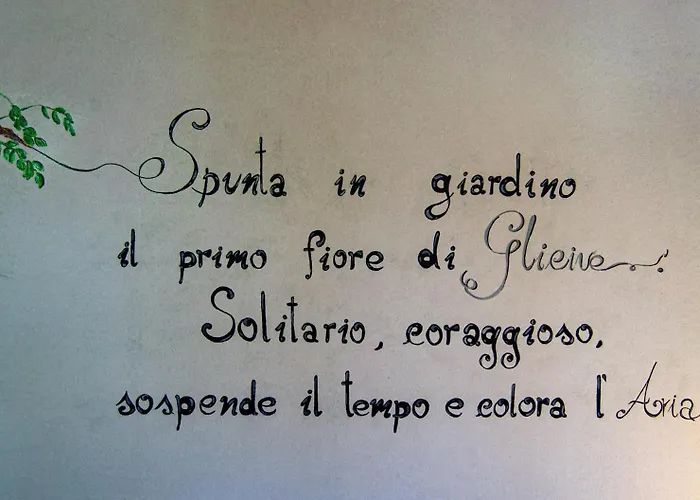 Spunta in giardino
il primo fiore di Glicine...
Solitario, coraggioso,
sospende il tempo e colora l'Aria